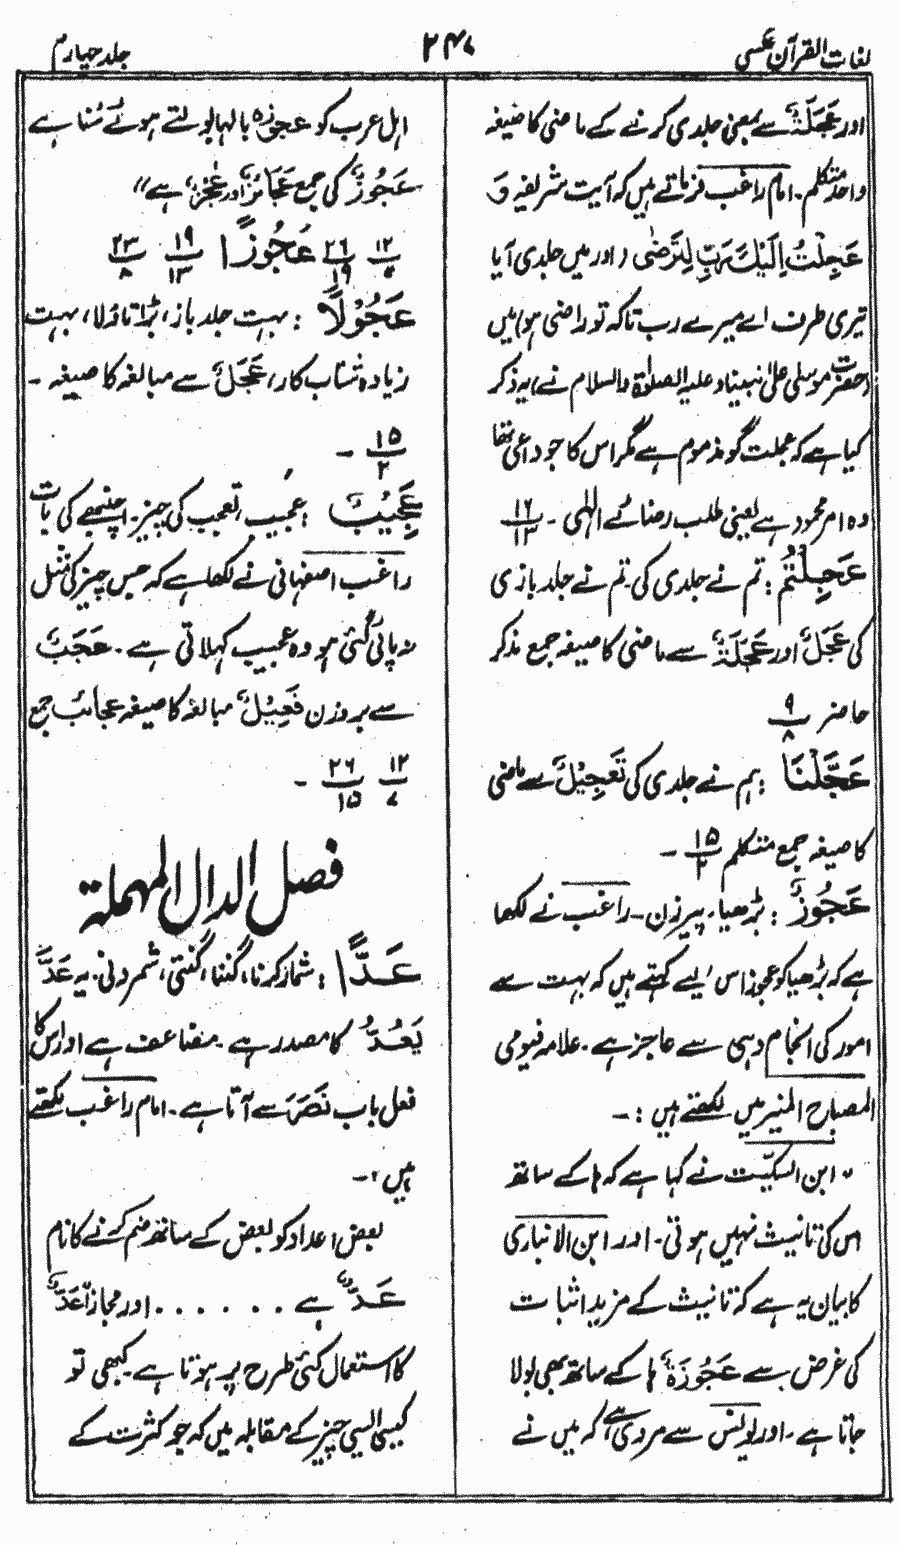 لغات القرآن عکسی
۲۴۷
جلد چہارم
اور عَجَّلَةٌ سے بمعنی جلدی کرنے کے ماضی کا صیغہ
واحد متکلم۔ امام راغب فرماتے ہیں کہ آیت شریفہ وَ
عَجِلْتُ اِلَيْكَ رَبِّ لِتَرْضٰی (اور میں جلدی آیا
تیری طرف اے میرے رب تاکہ تو راضی ہو) میں
(حضرت موسٰی علیٰ نبینا وعلیہ الصلوٰۃ والسلام نے) یہ ذکر
کیا ہے کہ عجلت گو مذموم ہے مگر اس کا جو داعی تھا
وہ امر محمود ہے یعنی طلب رضائے الٰہی ۔ ۱۶/۱۳
عَجِلْتُمْ : تم نے جلدی کی۔ تم نے جلد بازی
کی عَجَلٌ اور عَجَلَةٌ سے ماضی کا صیغہ جمع مذکر
حاضر ۹/۸
عَجَّلْنَا : ہم نے جلدی کی تَعْجِيْلٌ سے ماضی
کا صیغہ جمع متکلم ۱۵/۲ ۔
عَجُوْزٌ : بڑھیا۔ پیرزن ۔ راغب نے لکھا
ہے کہ بڑھیا کو عجوز اس لیے کہتے ہیں کہ بہت سے
امور کی انجام دہی سے عاجز ہے ۔ علامہ فیومی
المصباح المنیر میں لکھتے ہیں : ۔
” ابن السکیت نے کہا ہے کہ ہا کے ساتھ
اس کی تانیث نہیں ہوتی ۔ اور ابن الانباری
کا بیان یہ ہے کہ تانیث کے مزید اثبات
کی غرض سے عَجُوْزَةٌ ہا کے ساتھ بھی بولا
جاتا ہے ۔ اور یونس سے مروی ہے کہ میں نے
اہل عرب کو عجوزہ بالہا بولتے ہوئے سُنا ہے
عَجُوْزٌ کی جمع عَجَائِزُ اور عُجُزٌ ہے “
۱۲/۷ ۲۶/۱۹ عَجُوْزًا ۱۹/۱۳ ۲۳/۸
عَجُوْلًا : بہت جلد باز، بڑا تاؤلا، بہت
زیادہ شتاب کار، عَجَلٌ سے مبالغہ کا صیغہ ۔
۱۵/۲ ۔
عَجِيْبٌ : عجیب، تعجب کی چیز۔ اچنبھے کی بات
راغب اصفہانی نے لکھا ہے کہ جس چیز کی مثل
نہ پائی گئی ہو وہ عجیب کہلاتی ہے ۔ عَجَبٌ
سے بروزن فَعِيْلٌ مبالغہ کا صیغہ عجائب جمع
۱۲/۷ ۲۶/۱۵ ۔
فصل الدال المهملة
عَدًّا : شمار کرنا، گننا، گنتی، شمردنی۔ یہ عَدَّ
يَعُدُّ کا مصدر ہے ۔ مضاعف ہے اور اس کا
فعل باب نَصَرَ سے آتا ہے ۔ امام راغب لکھتے
ہیں ”۔
بعض اعداد کو بعض کے ساتھ ضم کرنے کا نام
عَدٌّ ہے ۔ ۔ ۔ ۔ ۔ ۔ اور مجازاً عَدٌّ
کا استعمال کئی طرح پر ہوتا ہے ۔ کبھی تو
کسی ایسی چیز کے مقابلہ میں کہ جو کثرت کے